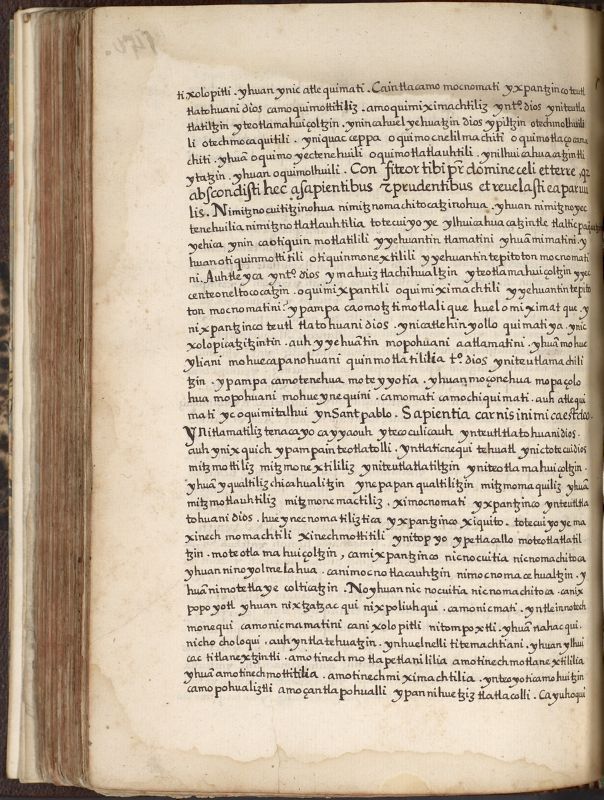 ti xolopitli . yhuan ynic atle quimati . Ca intlacamo mocnomati yxpantzinco teutl
tlatohuani dios camo quimottitiliz . amo quimiximachtiliz ynto. dios yniteutla
tlatiltzin yteotlamahuiçoltzin . ynin cahuel yehuatzin dios ypiltzin otechmolhuili
li otechmocaquitili . yniquac ceppa oquimocnelilmachiti oquimotlaçocama
chiti . yhuā oquimoyectenehuili oquimotlatlauhtili . ynilhuicahuacatzintli
ytatzin . yhuan oquimolhuili . Confiteor tibi pr̄ domine celi et terre , qz
abscondisti hec a sapientibus & prudentibus et reuelasti ea paruu
lis . Nimitznocuitiītzinohua nimitznomachitocatzinohua . yhuan nimitznoyec
tenehuilia nimitznotlatlauhtilia totecuiyoye ylhuicahuacatzintle tlalticpaque
yehica ynin ca otiquinmotlatilili yyehuantin tlamatini yhuā mimatini . y
huan otiquinmottitili otiquinmonextilili yyehuantin tepitoton mocnomati
ni . Auh tleyca ynto. dios ymahuiztlachihualtzin yteotlamahuiçoltzin yyec
centeoneltococatzin . oquimixpantili oquimiximachtili yyehuantin tepito
ton mocnomatini ? ypampa ca omotztimotlali que huel omiximatque . y
nixpantzinco teutl tlatohuani dios . ynic atlehin yollo quimatiya . ynic
xolopicatzitzintin . auh yyehuātin mopohuani aatlamatini . yhuā mohue
yliani mohuecapanohuani quinmotlatililia to. dios yniteutlamachili
tzin . ypampa camotenehua moteyyotia . yhuan moçonehua mopaçolo
hua mopohuani mohueynequini . camomati camochiquimati . auh atlequi
mati yc oquimitalhui yn Sant pablo . Sapientia carnis inimica est deo .
Ynitlamatiliz tenacayo cayyaouh ytecoculicauh ynteutl tlatohuani dios .
auh ynixquich ypampain teotlatolli . yntlaticnequi tehuatl ynic totecui dios
mitzmottiliz mitzmonextililiz yniteutlatlatiltzin yniteotlamahuiçoltzin .
yhuā yqualtiliz chicahualitzin ynepapan qualtiliztzin mitzmomaquiliz yhuā
mitzmotlauhtiliz mitzmonemactiliz . ximocnomati yxpantzinco ynteutl tla
tohuani dios . hueynecnomatiliztica yxpantzinco xiquito . totecuiyoyema
xinech momachtili xinechmottitili ynitopyo ypetlacallo moteotlatlatil
tzin . moteotlamahuiçoltzin , ca mixpantzinco nicnocuitia nicnomachitoca
yhuan ninoyolmelahua . canimocnotlacauhtzin nimocnomacehualtzin . y
huā nimotetlaye colticatzin . No yhuan nicnocuitia nicnomachitoca . canix
popoyotl yhuan nixtzatzacqui nixpoliuhqui . camonicmati . yntlein notech
monequi camonicmamatini canixolopitli nitompoxtli . yhuā nahacqui .
nicho choloqui . auh yntlatehuatzin . ynhuelnelli titemachtiani . yhuan ylhui
cac titlanextzintli . amotinechmotlapetlanililia amotinechmotlanextililia
yhuā amotinechmottitilia . amotinechmiximachtilia . ynteoyoticamohuitzin
camopohualiztli amoçantlapohualli ypannihuetziz tlatlacolli . Ca yuhqui